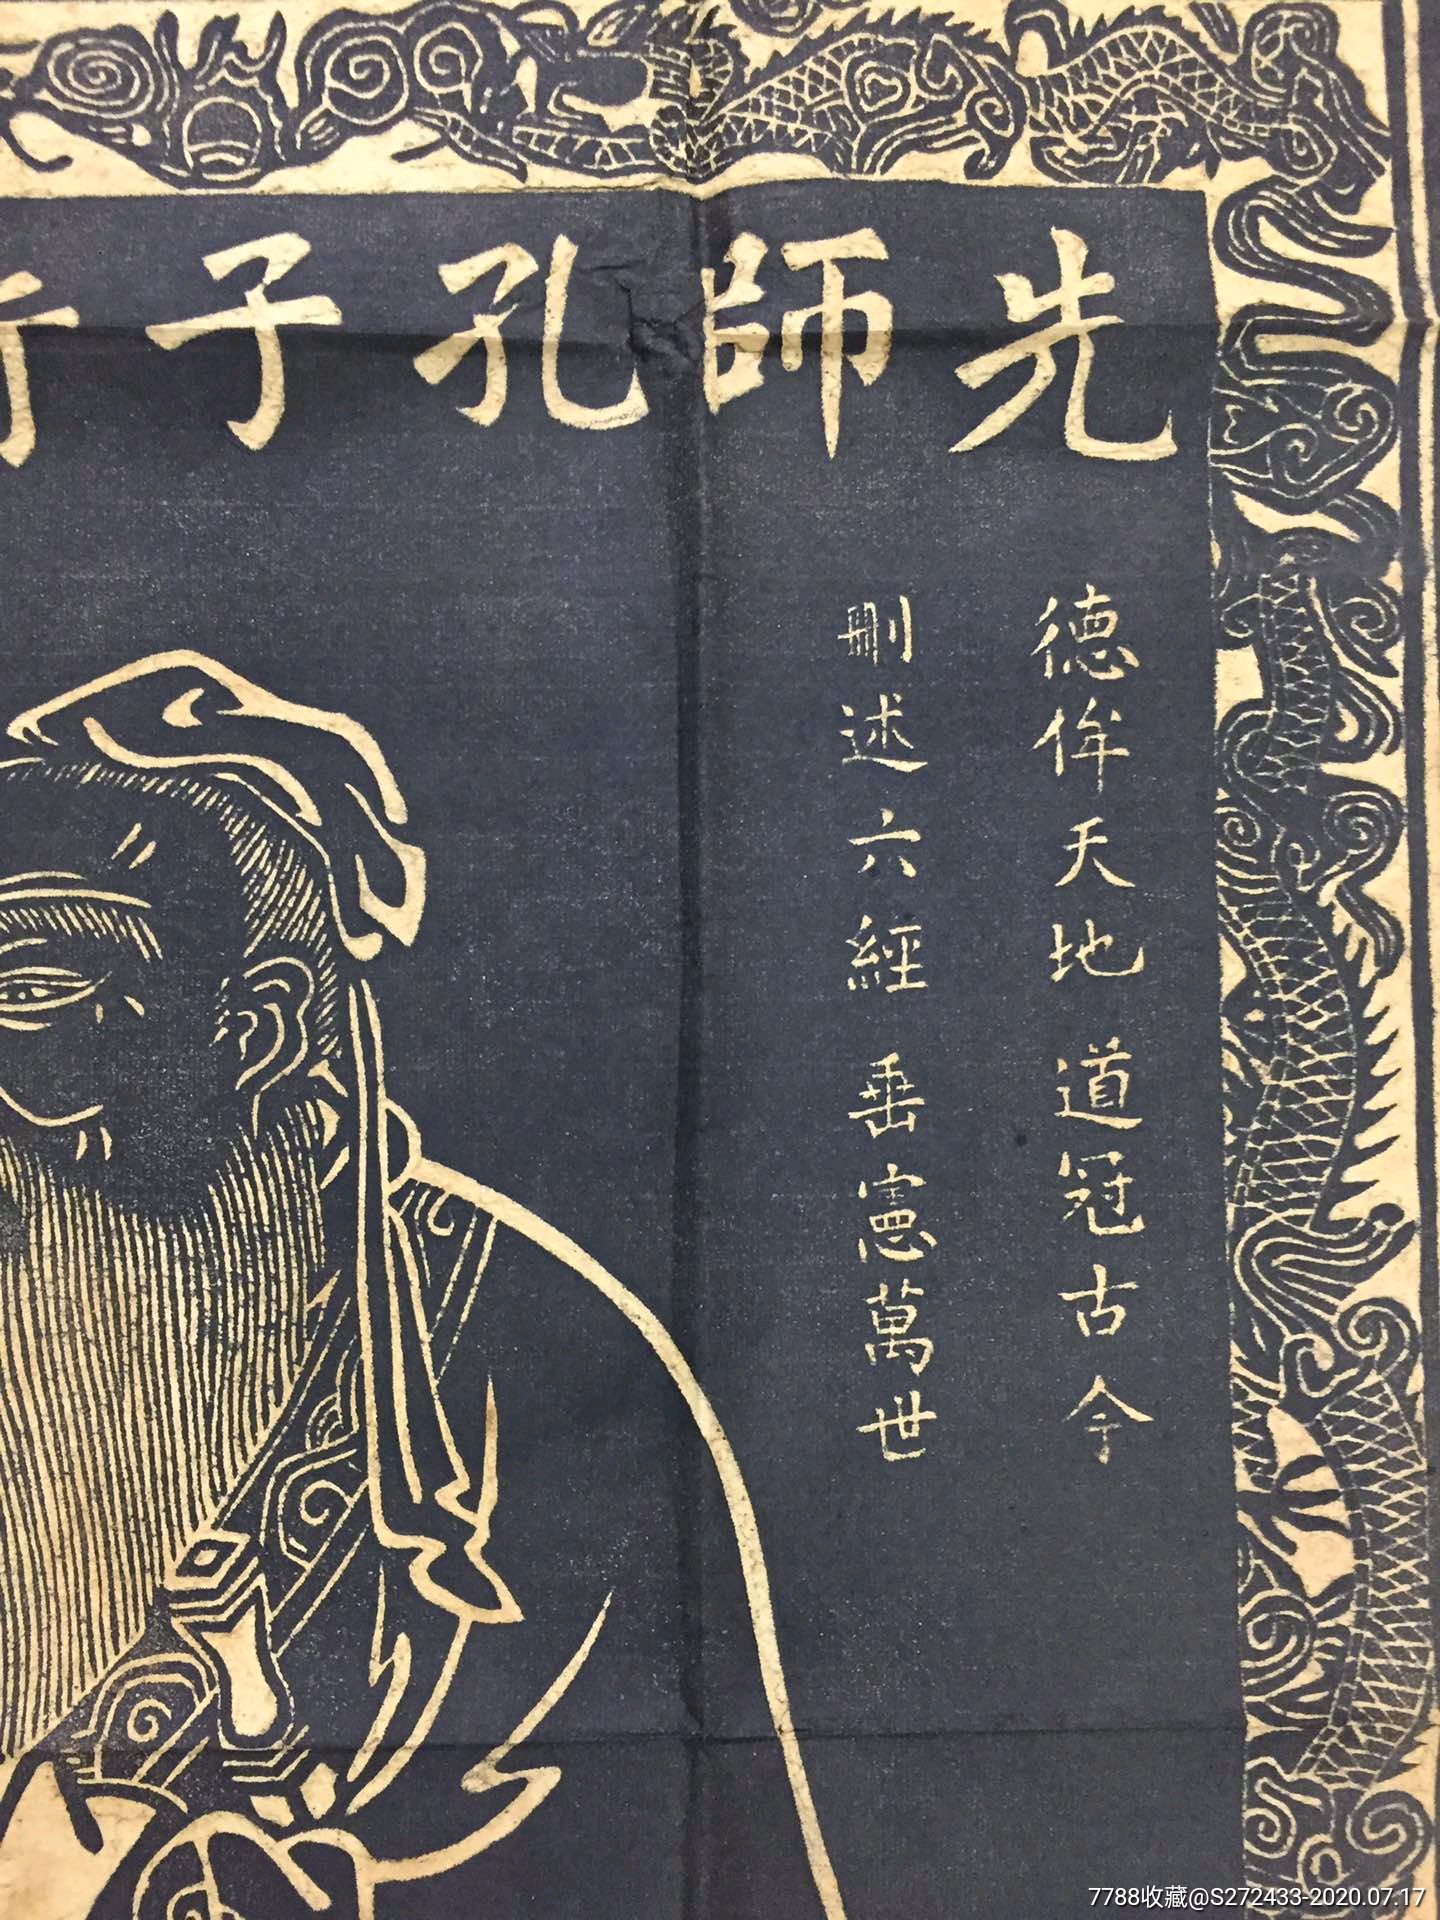 先師孔子行
德侔天地道冠古今
刪述六經垂憲萬世
7788收藏@S272433-2020.07.17